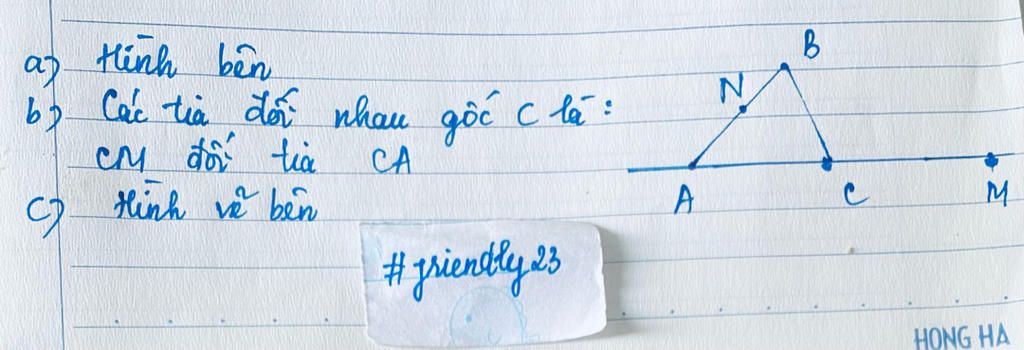 a) Hình bên
b) Các tia đối nhau gốc C là:
CM đối tia CA
c) Hình vẽ bên
B
N
A
C
M
#friendly23
HONG HA